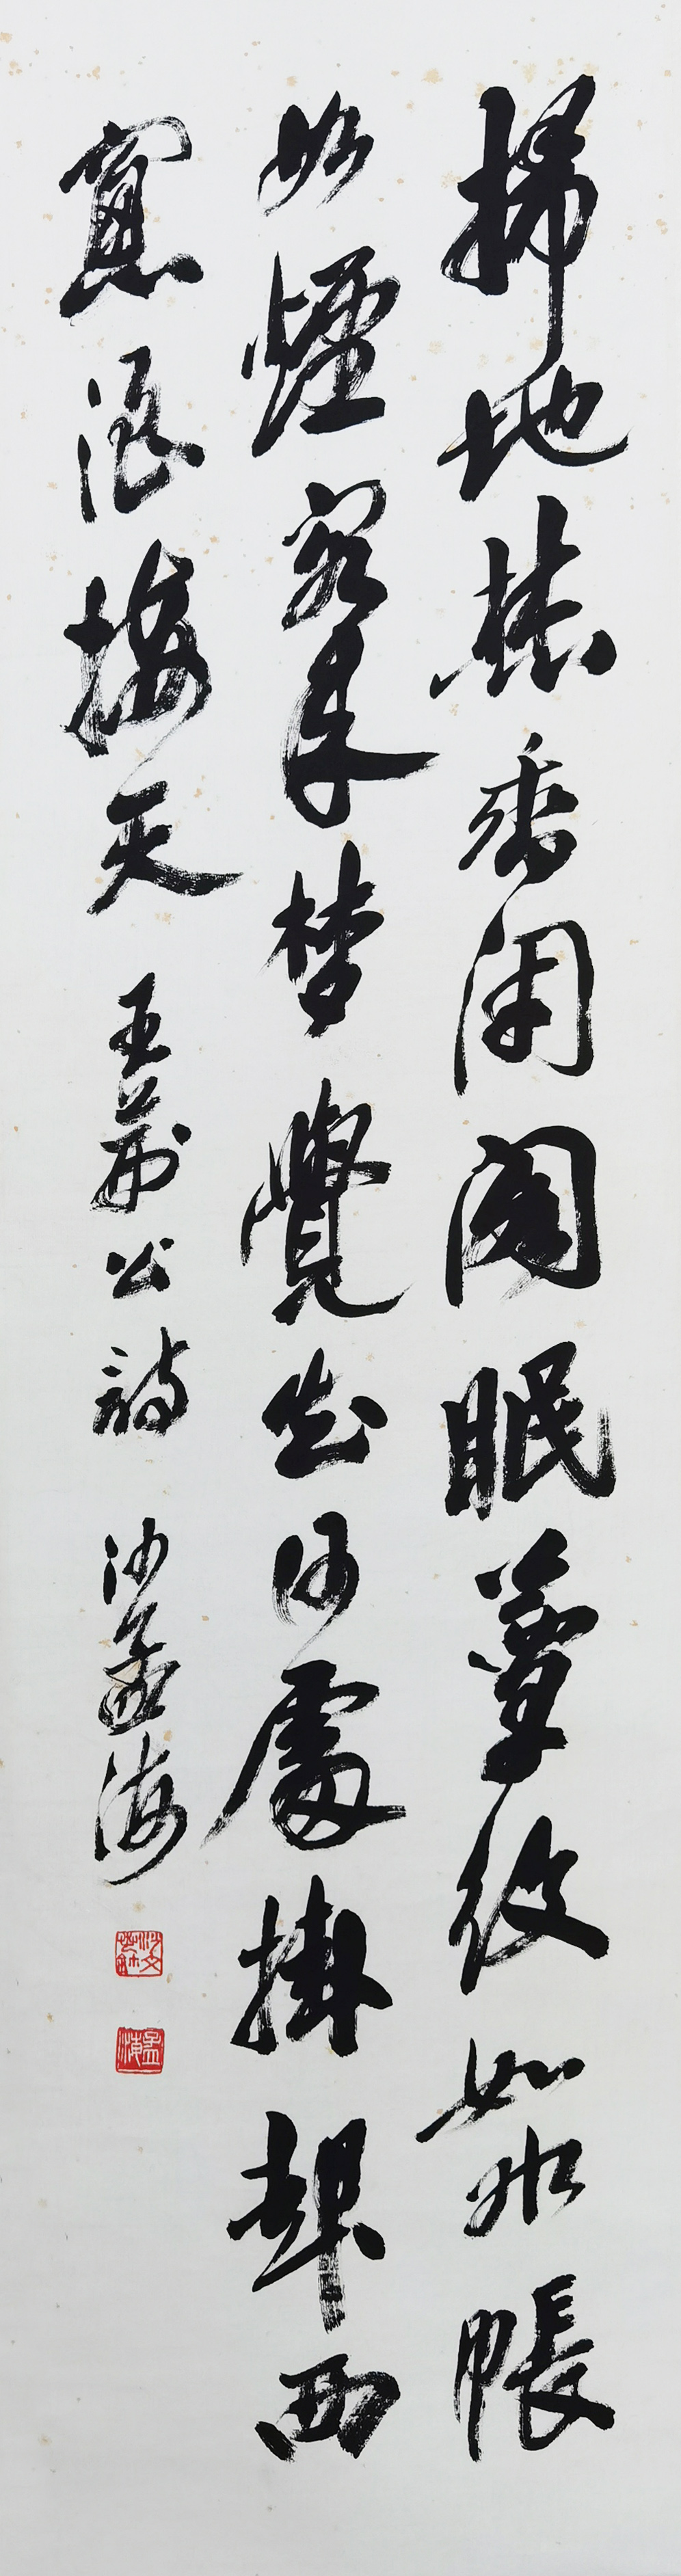 掃地焚香閉閣眠簟紋如水帳
如煙客來夢覺知何處掛起西
窻浪接天 王荊公詩 沙孟海
沙文若鉥
孟海